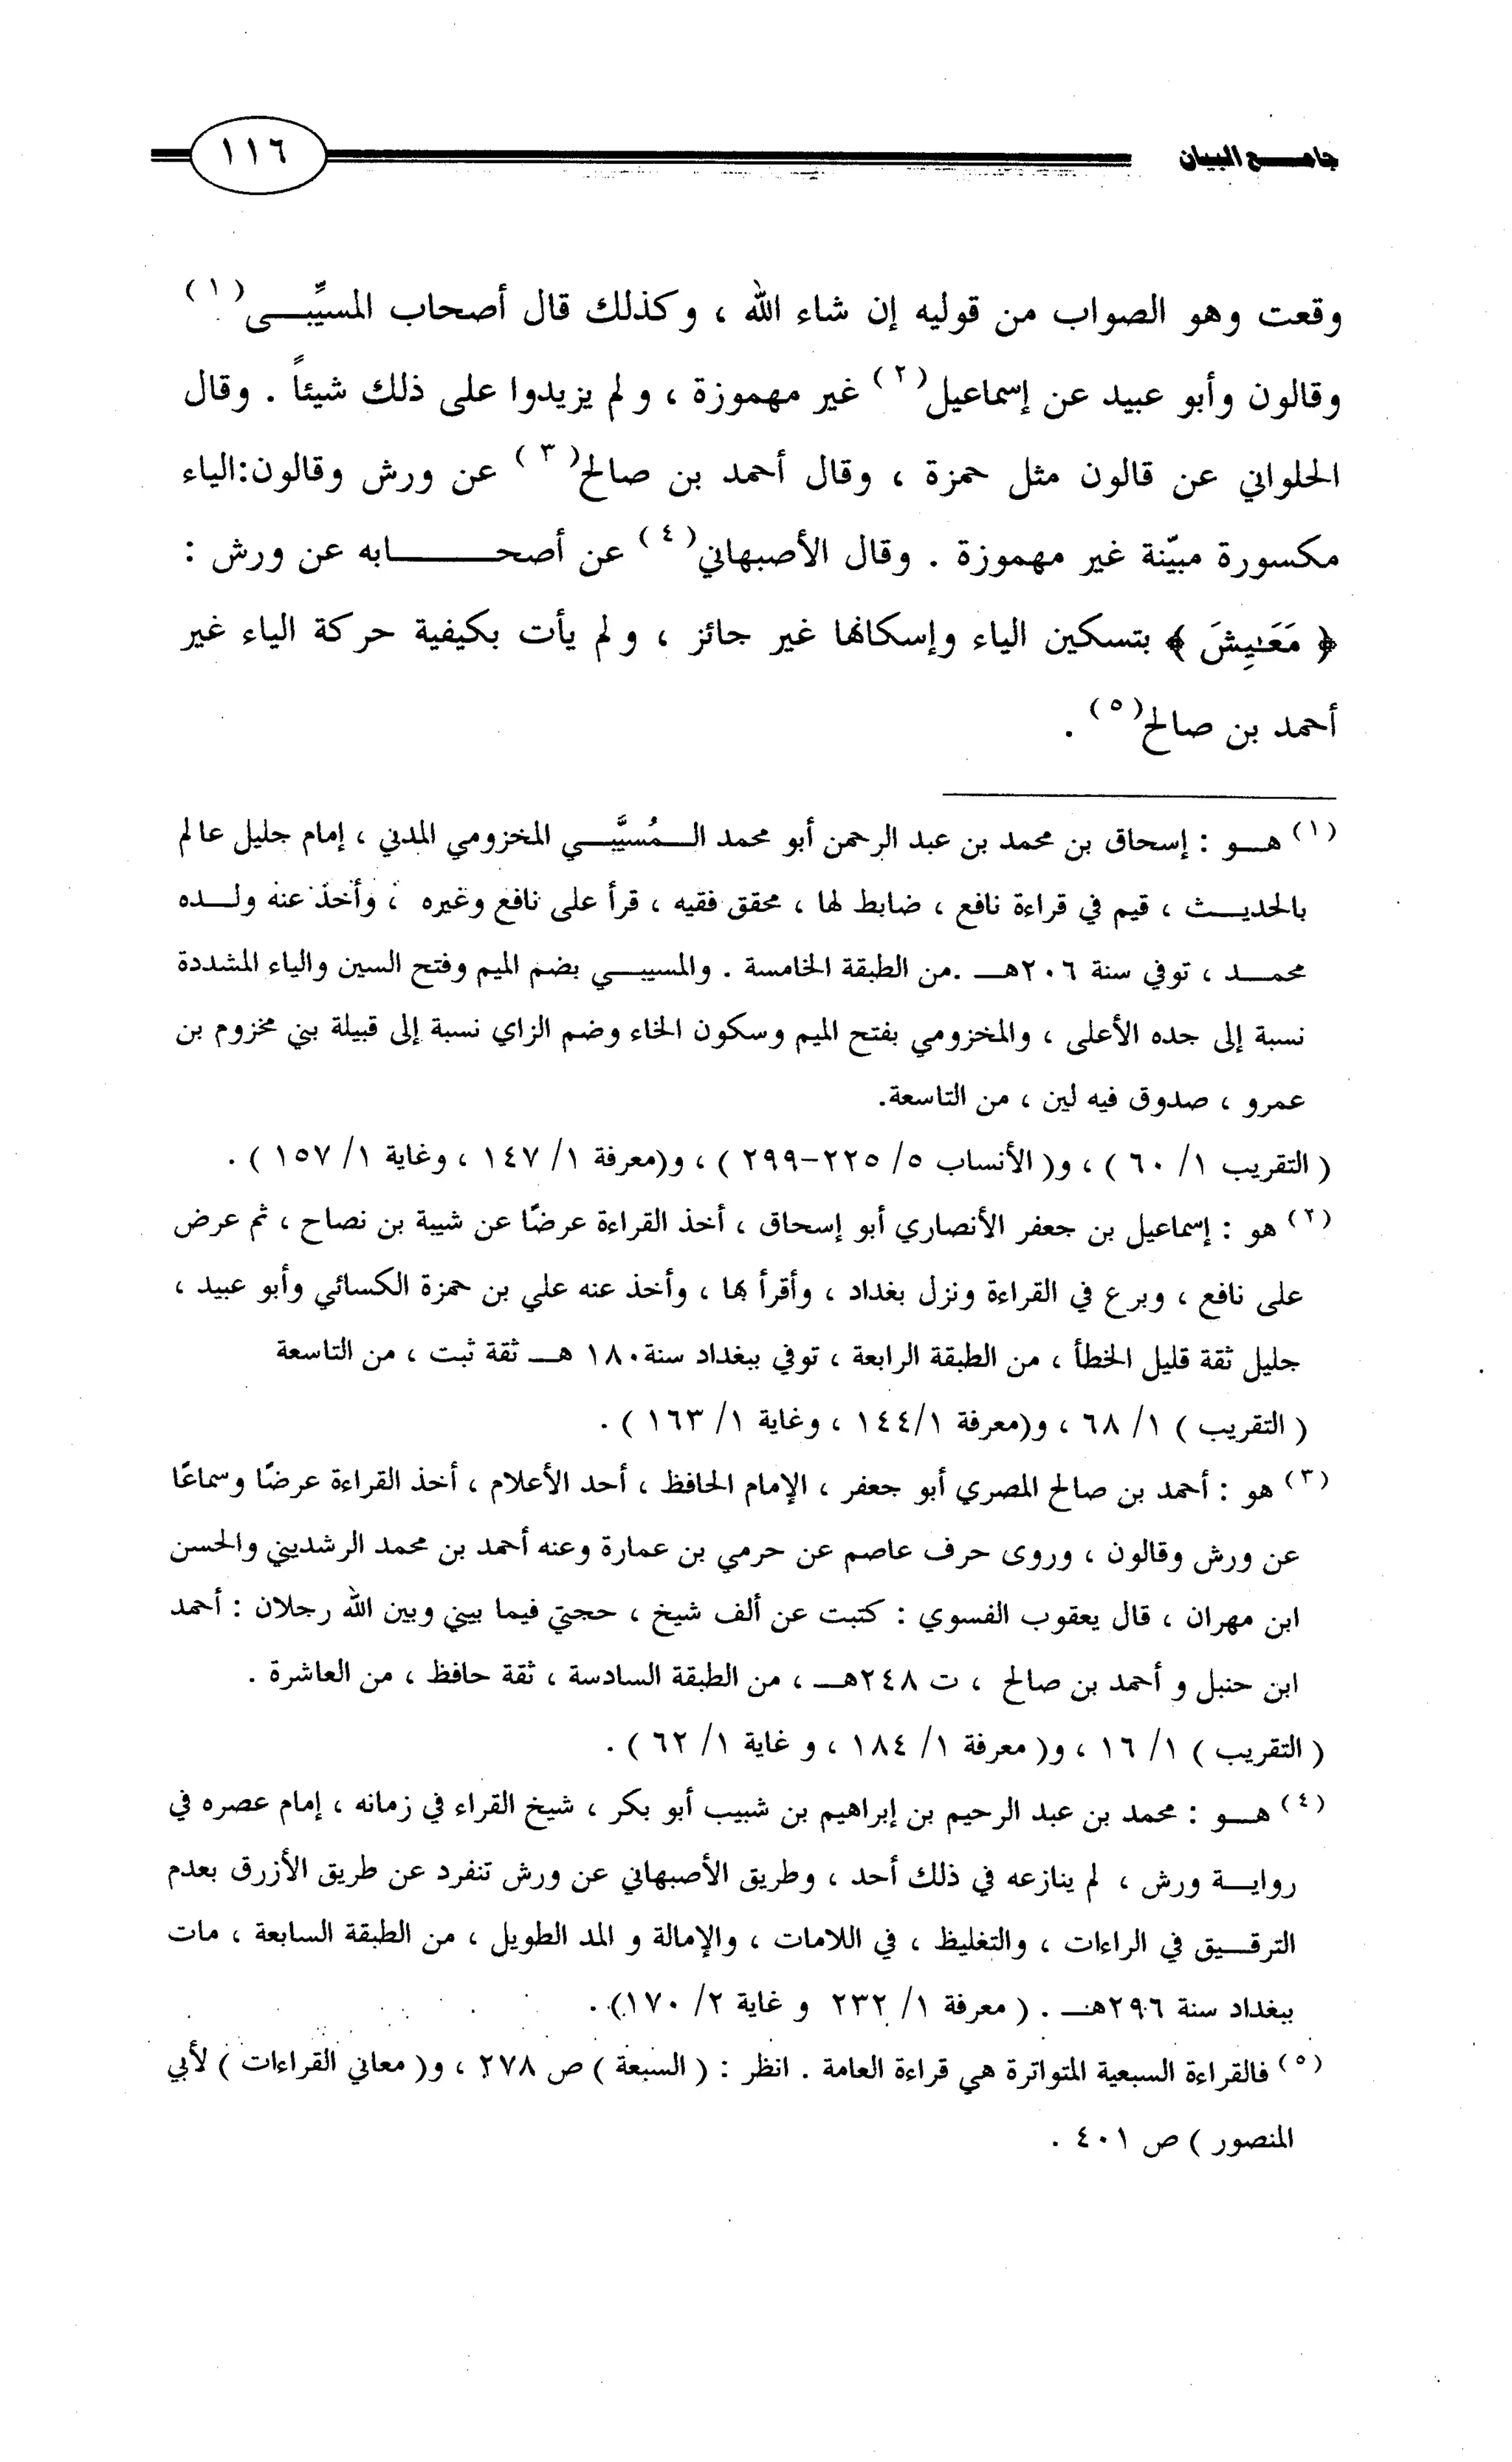 جامع البيان
١١٦
وقعت وهو الصواب من قوليه إن شاء الله ، وكذلك قال أصحاب المسيَّبي(١)
وقالون وأبو عبيد عن إسماعيل(٢) غير مهموزة ، ولم يزيدوا على ذلك شيئاً . وقال
الحلواني عن قالون مثل حمزة ، وقال أحمد بن صالح(٣) عن ورش وقالون:الياء
مكسورة مبيّنة غير مهموزة . وقال الأصبهاني(٤) عن أصحابه عن ورش :
﴿ مَعَـٰيِشَ ﴾ بتسكين الياء وإسكانها غير جائز ، ولم يأت بكيفية حركة الياء غير
أحمد بن صالح(٥) .
(١) هو : إسحاق بن محمد بن عبد الرحمن أبو محمد المُسيَّبي المخزومي المدني ، إمام جليل عالم
بالحديث ، قيم في قراءة نافع ، ضابط لها ، محقق فقيه ، قرأ على نافع وغيره ، وأخذ عنه ولده
محمد ، توفي سنة ٢٠٦هـ .من الطبقة الخامسة . والمسيبي بضم الميم وفتح السين والياء المشددة
نسبة إلى جده الأعلى ، والمخزومي بفتح الميم وسكون الخاء وضم الزاي نسبة إلى قبيلة بني مخزوم بن
عمرو ، صدوق فيه لين ، من التاسعة.
( التقريب ١/ ٦٠ ) ، و( الأنساب ٥/ ٢٢٥-٢٩٩ ) ، و(معرفة ١/ ١٤٧ ، وغاية ١/ ١٥٧ ) .
(٢) هو : إسماعيل بن جعفر الأنصاري أبو إسحاق ، أخذ القراءة عرضًا عن شيبة بن نصاح ، ثم عرض
على نافع ، وبرع في القراءة ونزل بغداد ، وأقرأ بها ، وأخذ عنه علي بن حمزة الكسائي وأبو عبيد ،
جليل ثقة قليل الخطأ ، من الطبقة الرابعة ، توفي ببغداد سنة١٨٠ هـ ثقة ثبت ، من التاسعة
( التقريب ) ١/ ٦٨ ، و(معرفة ١/١٤٤ ، وغاية ١/ ١٦٣ ) .
(٣) هو : أحمد بن صالح المصري أبو جعفر ، الإمام الحافظ ، أحد الأعلام ، أخذ القراءة عرضًا وسماعًا
عن ورش وقالون ، وروى حرف عاصم عن حرمي بن عمارة وعنه أحمد بن محمد الرشديني والحسن
ابن مهران ، قال يعقوب الفسوي : كتبت عن ألف شيخ ، حجتي فيما بيني وبين الله رجلان : أحمد
ابن حنبل و أحمد بن صالح ، ت ٢٤٨هـ ، من الطبقة السادسة ، ثقة حافظ ، من العاشرة .
( التقريب ) ١/ ١٦ ، و( معرفة ١/ ١٨٤ ، و غاية ١/ ٦٢ ) .
(٤) هو : محمد بن عبد الرحيم بن إبراهيم بن شبيب أبو بكر ، شيخ القراء في زمانه ، إمام عصره في
رواية ورش ، لم ينازعه في ذلك أحد ، وطريق الأصبهاني عن ورش تنفرد عن طريق الأزرق بعدم
الترقيق في الراءات ، والتغليظ ، في اللامات ، والإمالة و المد الطويل ، من الطبقة السابعة ، مات
ببغداد سنة ٢٩٦هـ . ( معرفة ١/ ٢٣٢ و غاية ٢/ ١٧٠) .
(٥) فالقراءة السبعية المتواترة هي قراءة العامة . انظر : ( السبعة ) ص ٢٧٨ ، و( معاني القراءات ) لأبي
المنصور ) ص ٤٠١ .